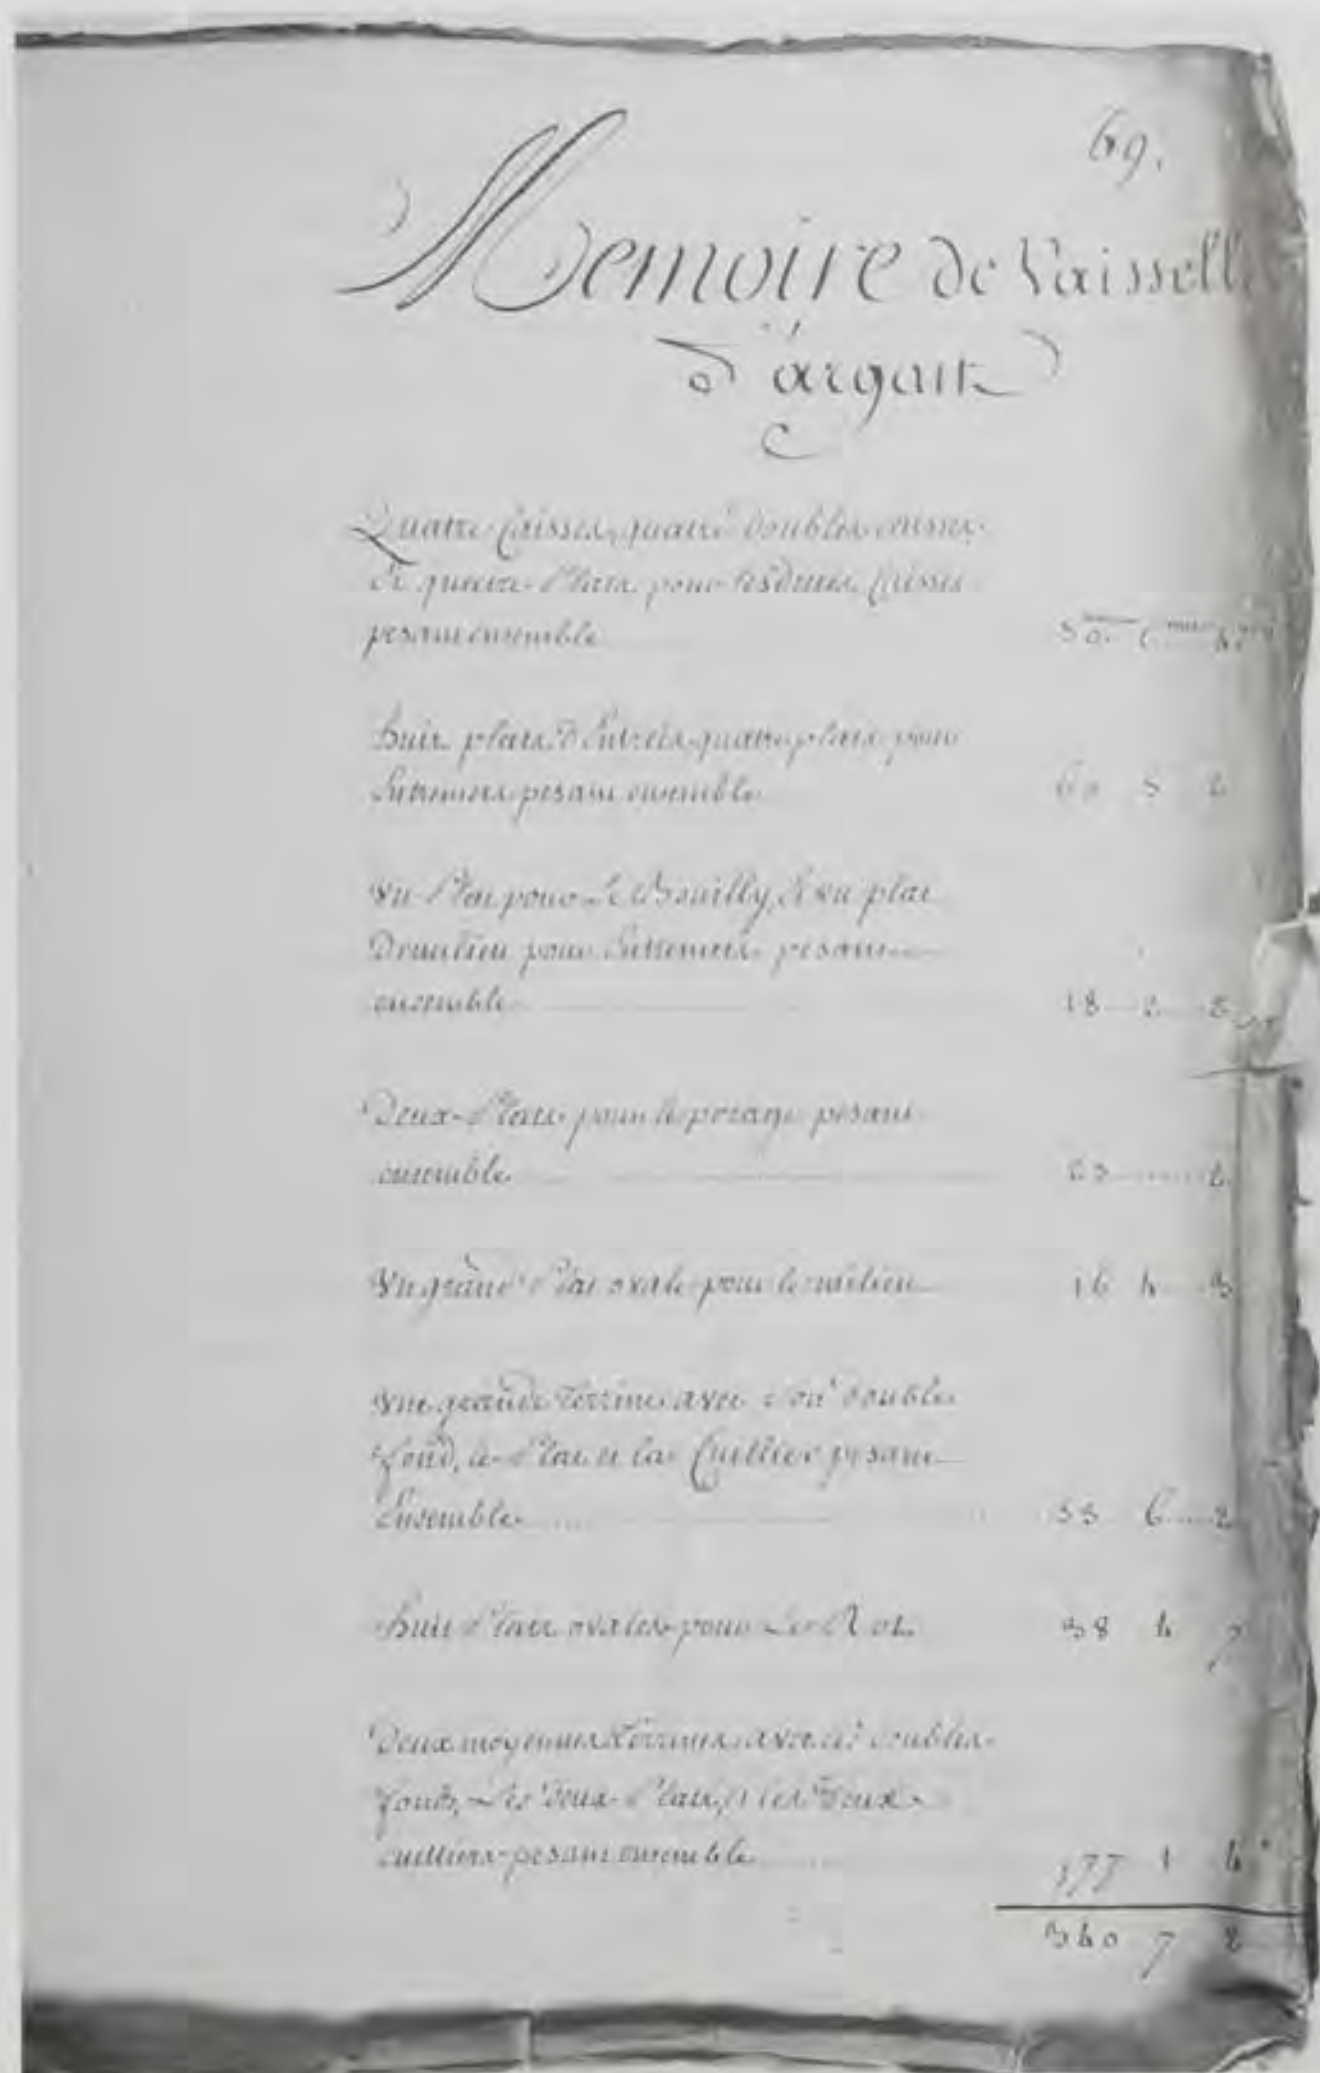 69.
Memoire de Vaisselle
d'argent
Quatre Caisses, quatre doubles caisses,
Et quatre Plats pour lesdittes Caisses
pesant ensemble
huit plats d'Entrées, quatre plats pour
Entremets pesant ensemble
Vn Plat pour Le Bouilly, & vn plat
Dumilieu pour Entremets pesant
ensemble 18 2
Deux Plats pour le potage pesant
ensemble
Vn grand Plat ovale pour le milieu 16 4 3
Vne grande Terrine avec son double
fond, le Plat et la Cuillier pesant
Ensemble 55 6 2
huit Plats ovales pour Le Rot 38 4 7
Deux moyennes Terrines avec les doubles
fonds, Les deux Plats, et les deux
cuilliers pesant ensemble 77 1 4
340 7 2